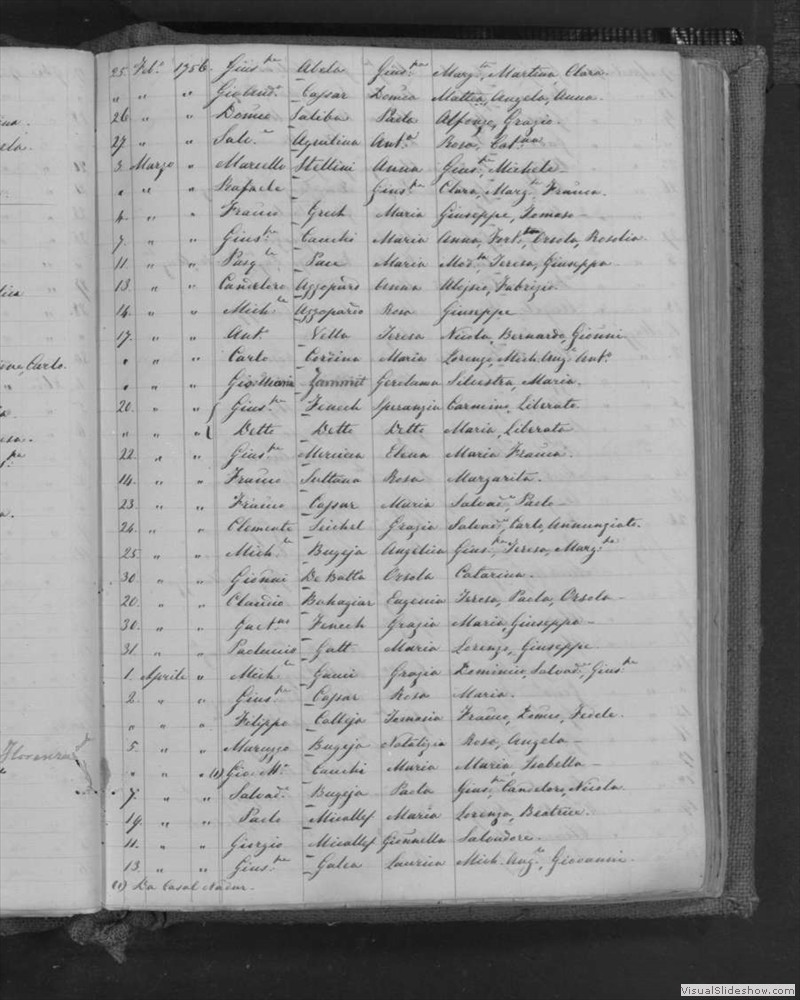 25. Feb.º 1756. Gius.ppe Abela Gius.pa Marg.ta, Martina, Clara.
" " " Gio And.ª Cassar Domca Mattea, Angela, Anna.
26 " " Domco Saliba Paola Alfonzo, Grazio.
27. " " Salv.re Agrilina Ant.ª Rosa, Cat.na
3 Marzo " Marcello Stellini Anna Gius.ppe, Michele
" " " Rafaele Gius.pa Clara, Marg.ta, Franca.
4. " " Franco Grech Maria Giuseppe, Tomaso
7. " " Gius.ppe Cauchi Maria Anna, Fort.ta, Orsola, Rosolia
11. " " Pasq.le Pace Maria Mod.ta, Teresa, Giuseppa
13. " " Candloro Azzopardo Anna Alosio, Fabrizio
14. " " Mich.le Azzopardo Rosa Giuseppe
17. " " Ant.º Vella Teresa Nicola, Bernardo, Gionni
" " " Carlo Cordina Maria Lorenzo, Mich. Ang.º Ant.º
" " " Zammit Gerolama Silvestra, Maria.
20. " " Gius.ppe Fenech Speranzia Carmino, Liberato
" " " Detto Detto Detto Maria, Liberata
22. " " Gius.ppe Mercieca Elena Maria Franca.
14. " " Franco Sultana Rosa Margarita.
23. " " Franco Cassar Maria Salvad.e, Paolo
24. " " Clemente Seichel Grazia Salvad.e, Carlo, Annunziato.
25. " " Mich.le Bugeja Angelica Gius.ppe, Teresa, Marg.ta
30. " " Gionni De Batta Orsola Catarina.
20. " " Claudio Buhagiar Eugenia Teresa, Paola, Orsola
30. " " Gaet.no Fenech Grazia Maria, Giuseppa
31. " " Paolucio Gatt Maria Lorenzo, Giuseppe
1. Aprile " Mich.le Gauci Grazia Dominico, Salvad.e, Gius.ppe
2. " " Gius.ppe Cassar Rosa Maria.
" " " Filippo Calleja Tomasia Franco, Domco, Fedele.
5. " " Maruzzo Bugeja Natalizia Rosa, Angela
" " " (1) Gio: M.ª Cauchi Maria Maria, Isabella
7. " " Salvad.e Bugeja Paola Gius.ppe, Candeloro, Nicola
19. " " Paolo Micallef Maria Lorenzo, Beatrice.
11. " " Giorgio Micallef Gionnella Salvadore.
13. " " Gius.ppe Galea Laurica Mich. Ang.lo, Giovanni.
(1) Da Casal Nadur.
Carlo.
VisualSlideshow.com